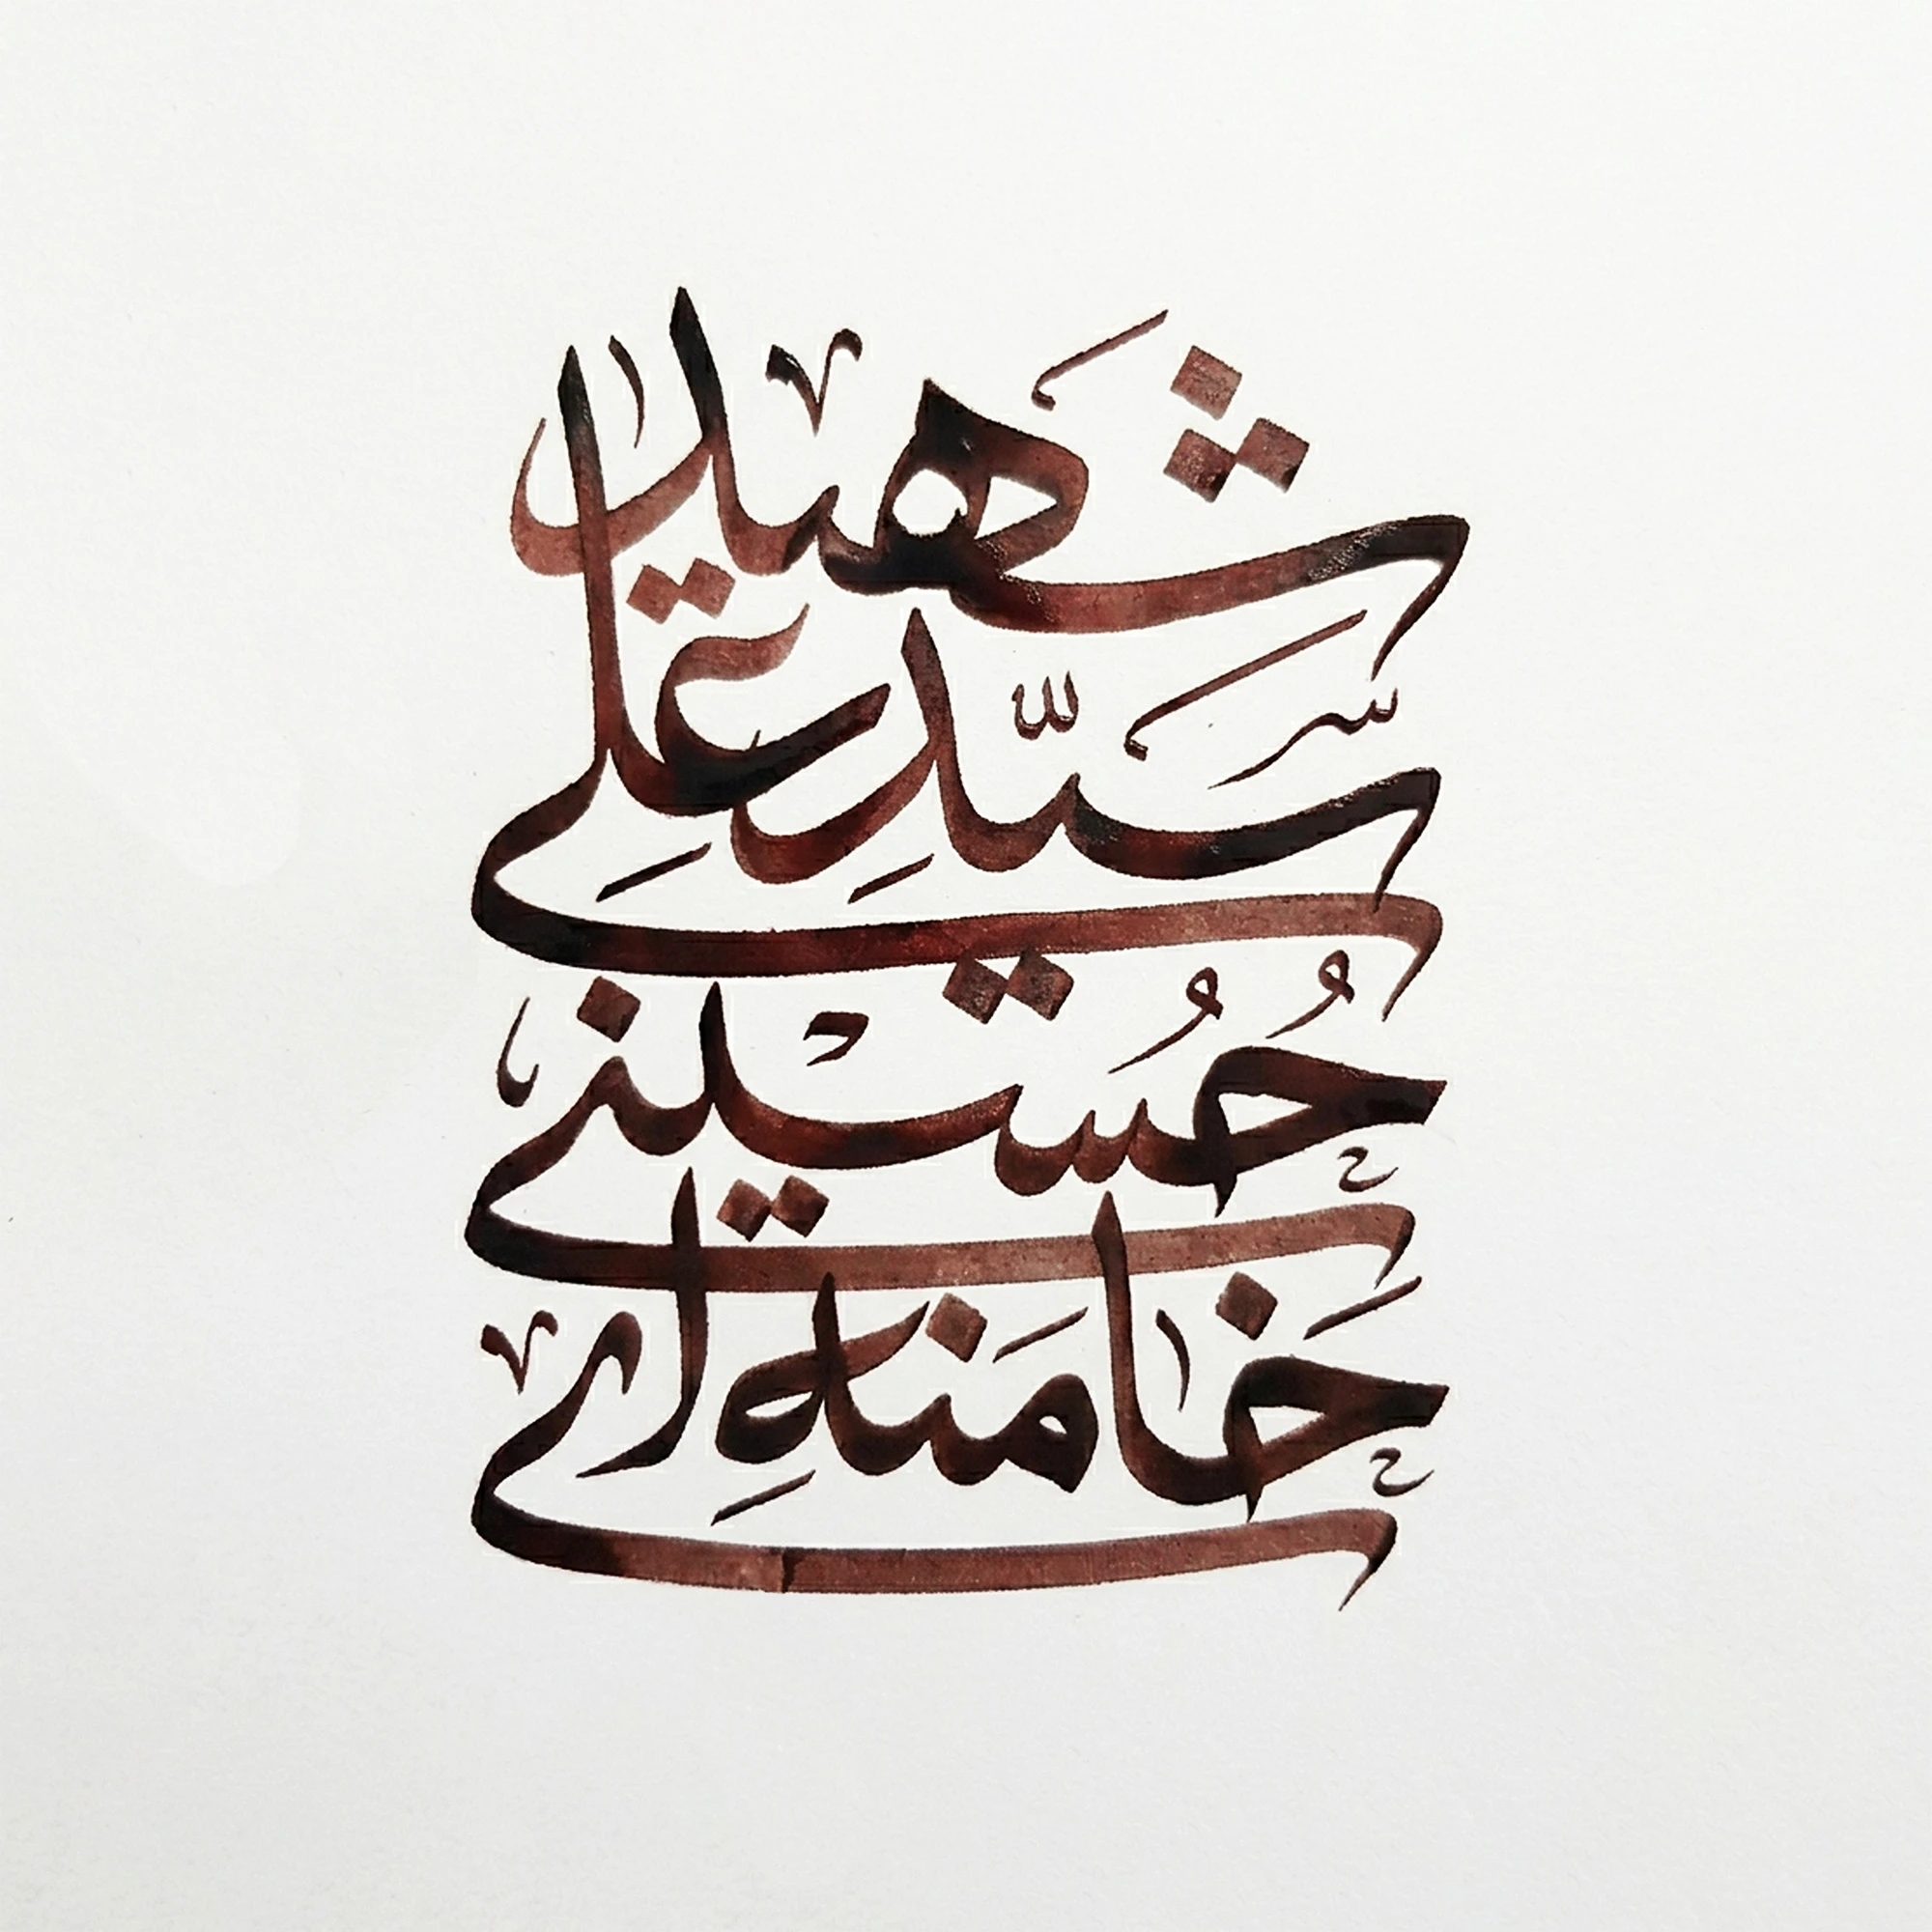 شَهید
سَیِّدِ عَلِی
حُسَینی
خَامَنِه‌ای